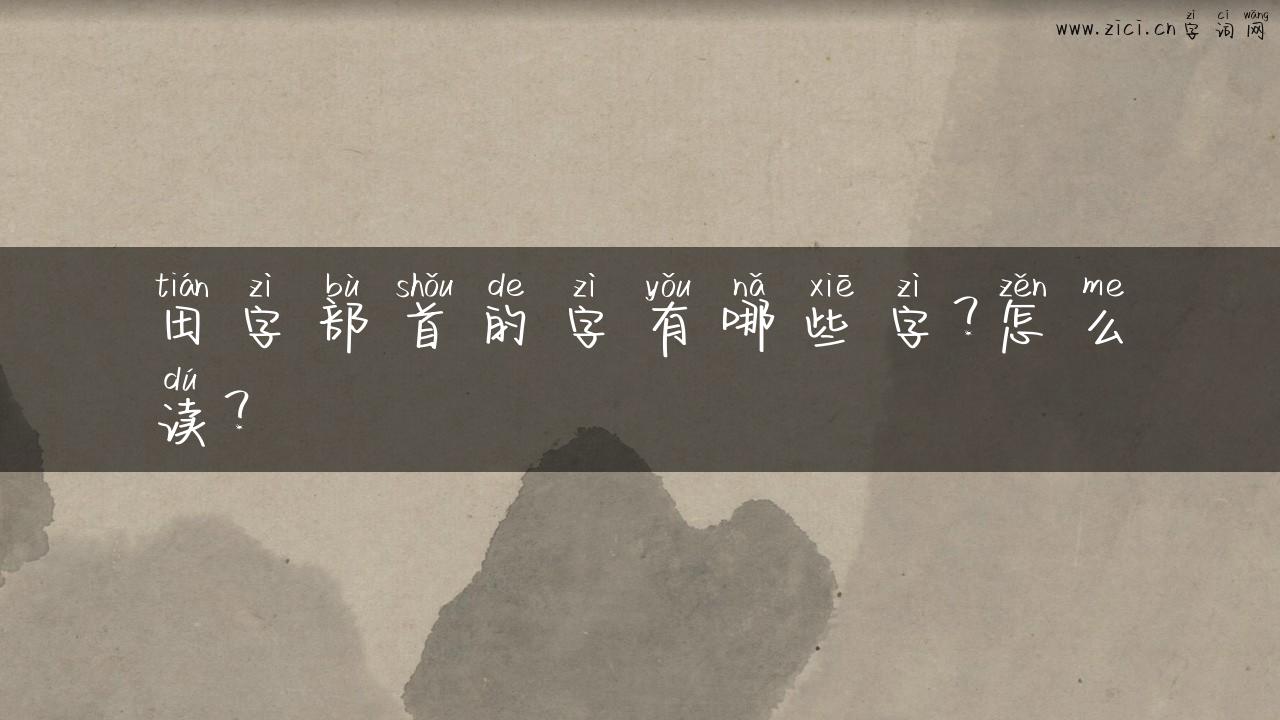 zì cí wǎng
www.zici.cn 字词网
tián zì bù shǒu de zì yǒu nǎ xiē zì zěn me
田字部首的字有哪些字?怎么
dú
读?